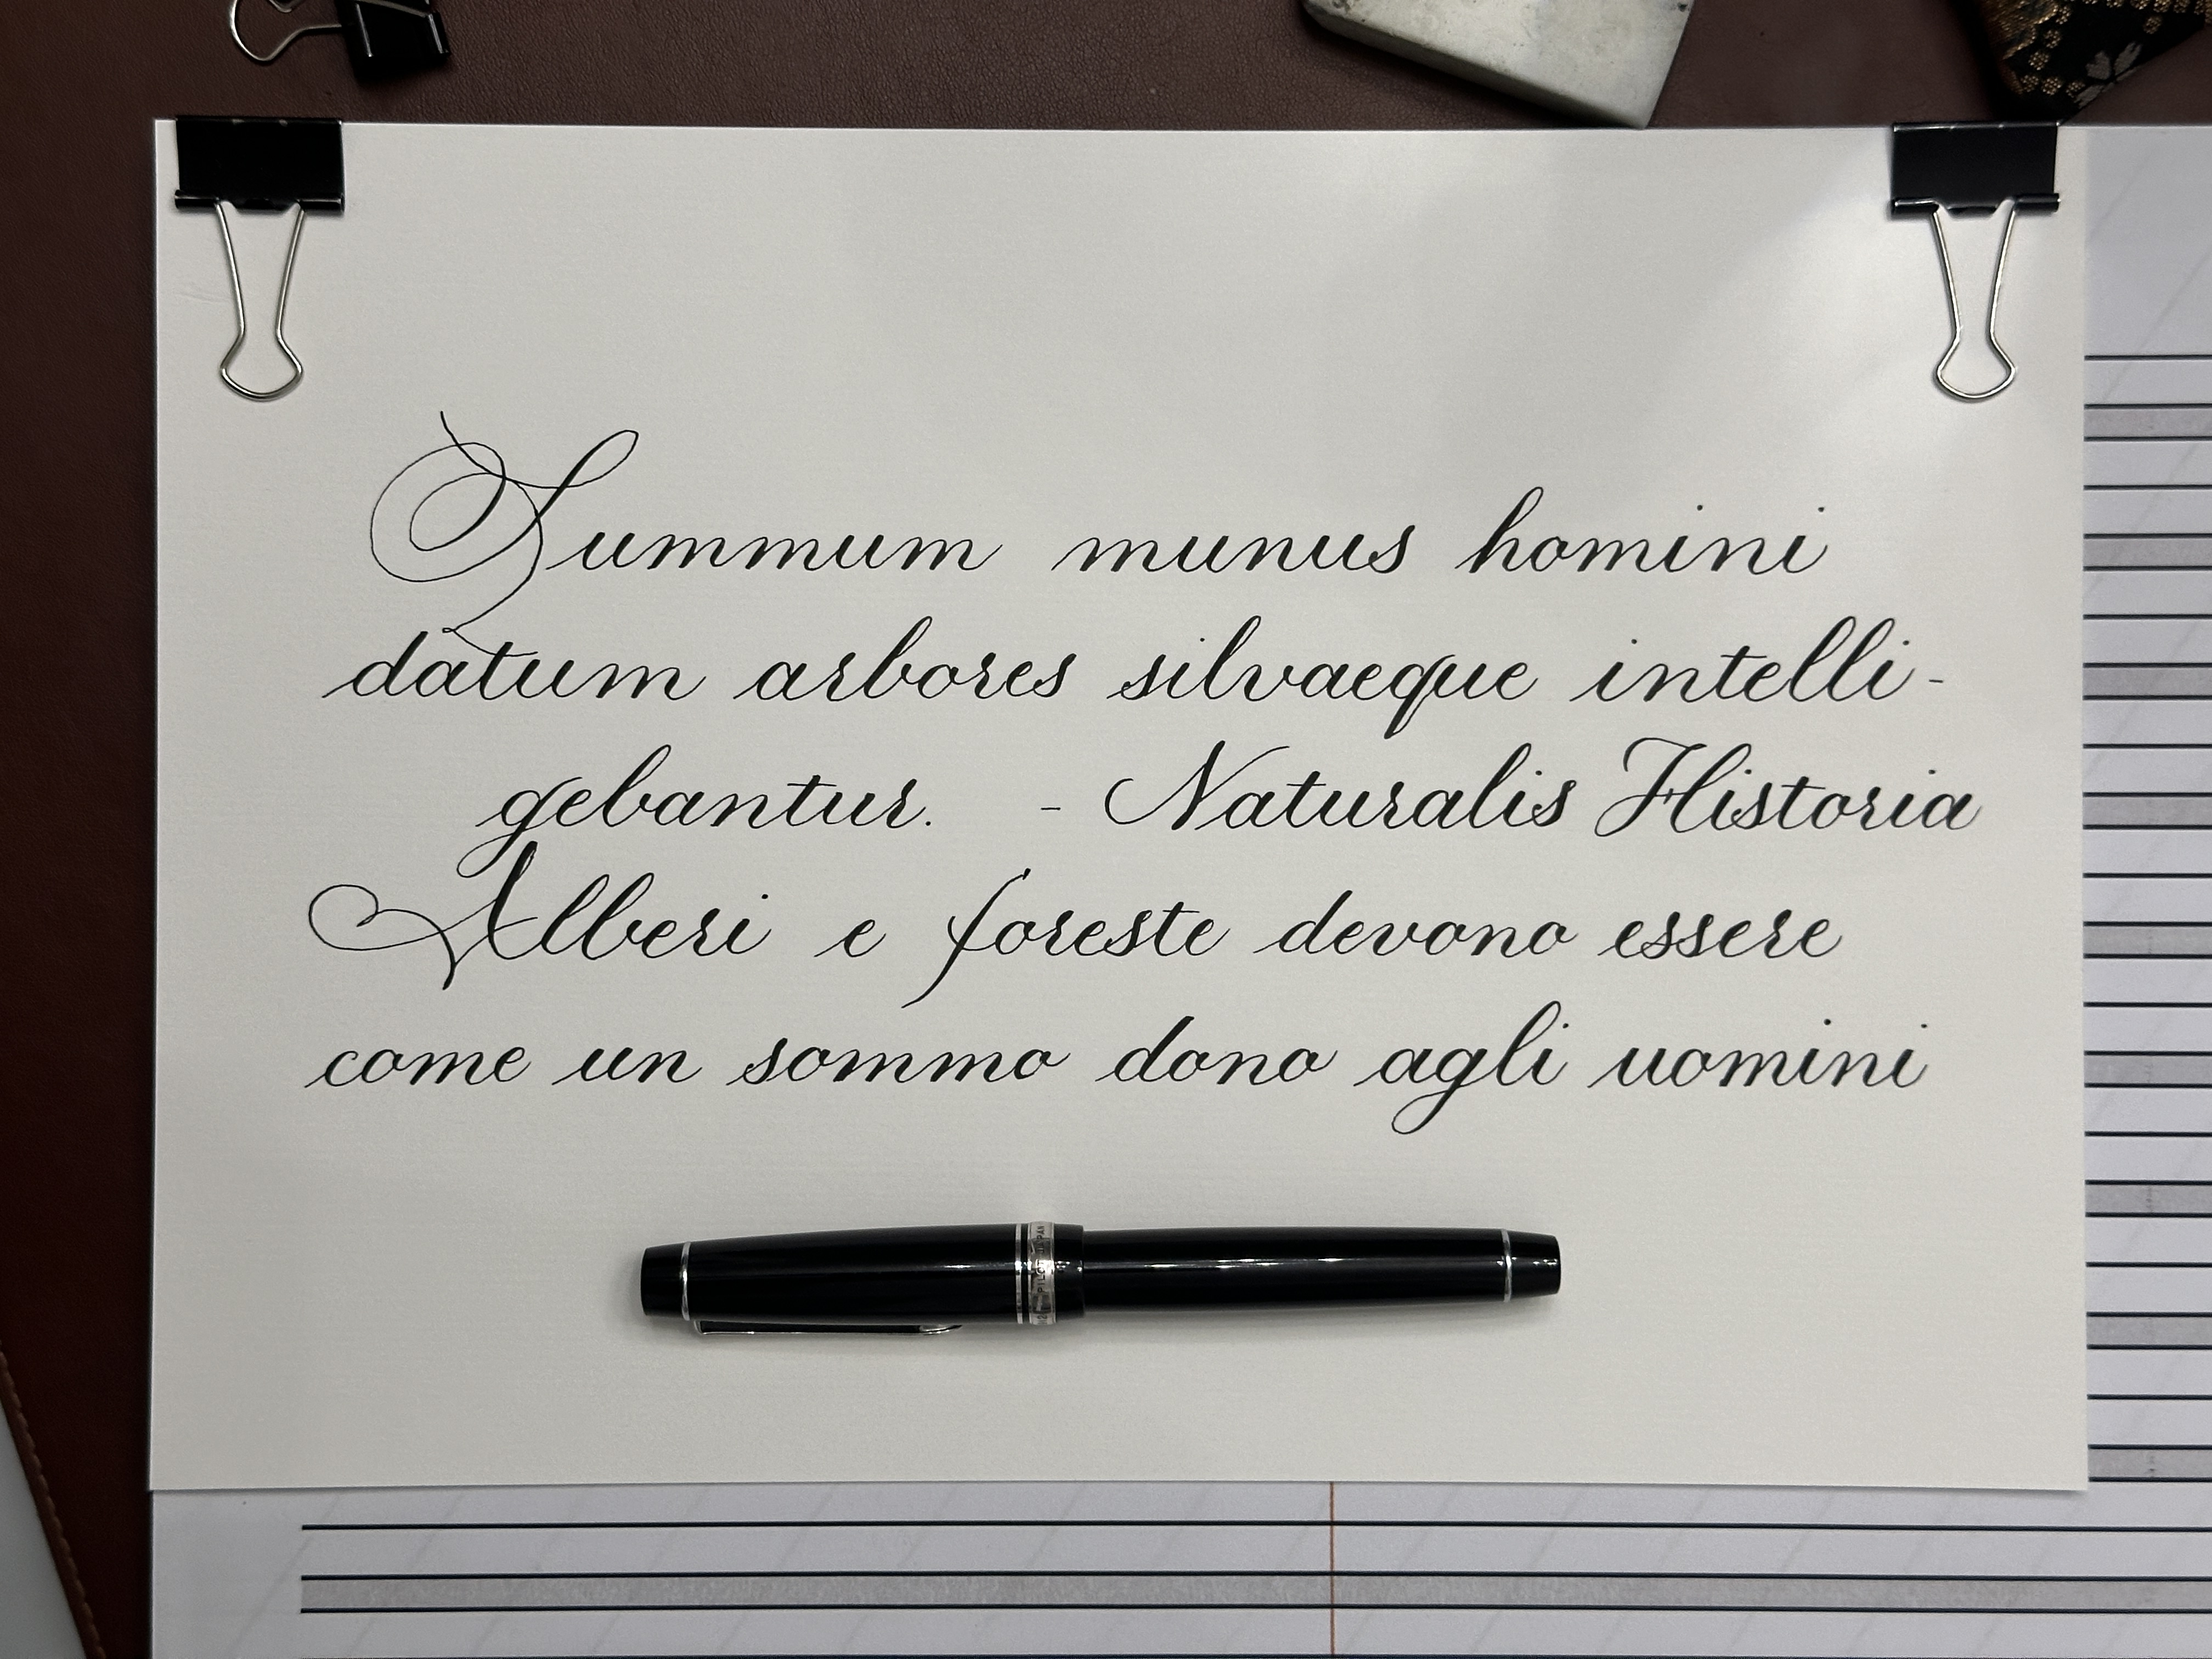 Summum munus homini
datum arbores silvaeque intelli-
gebantur. - Naturalis Historia
Alberi e foreste devono essere
come un sommo dono agli uomini
PILOT JAPAN